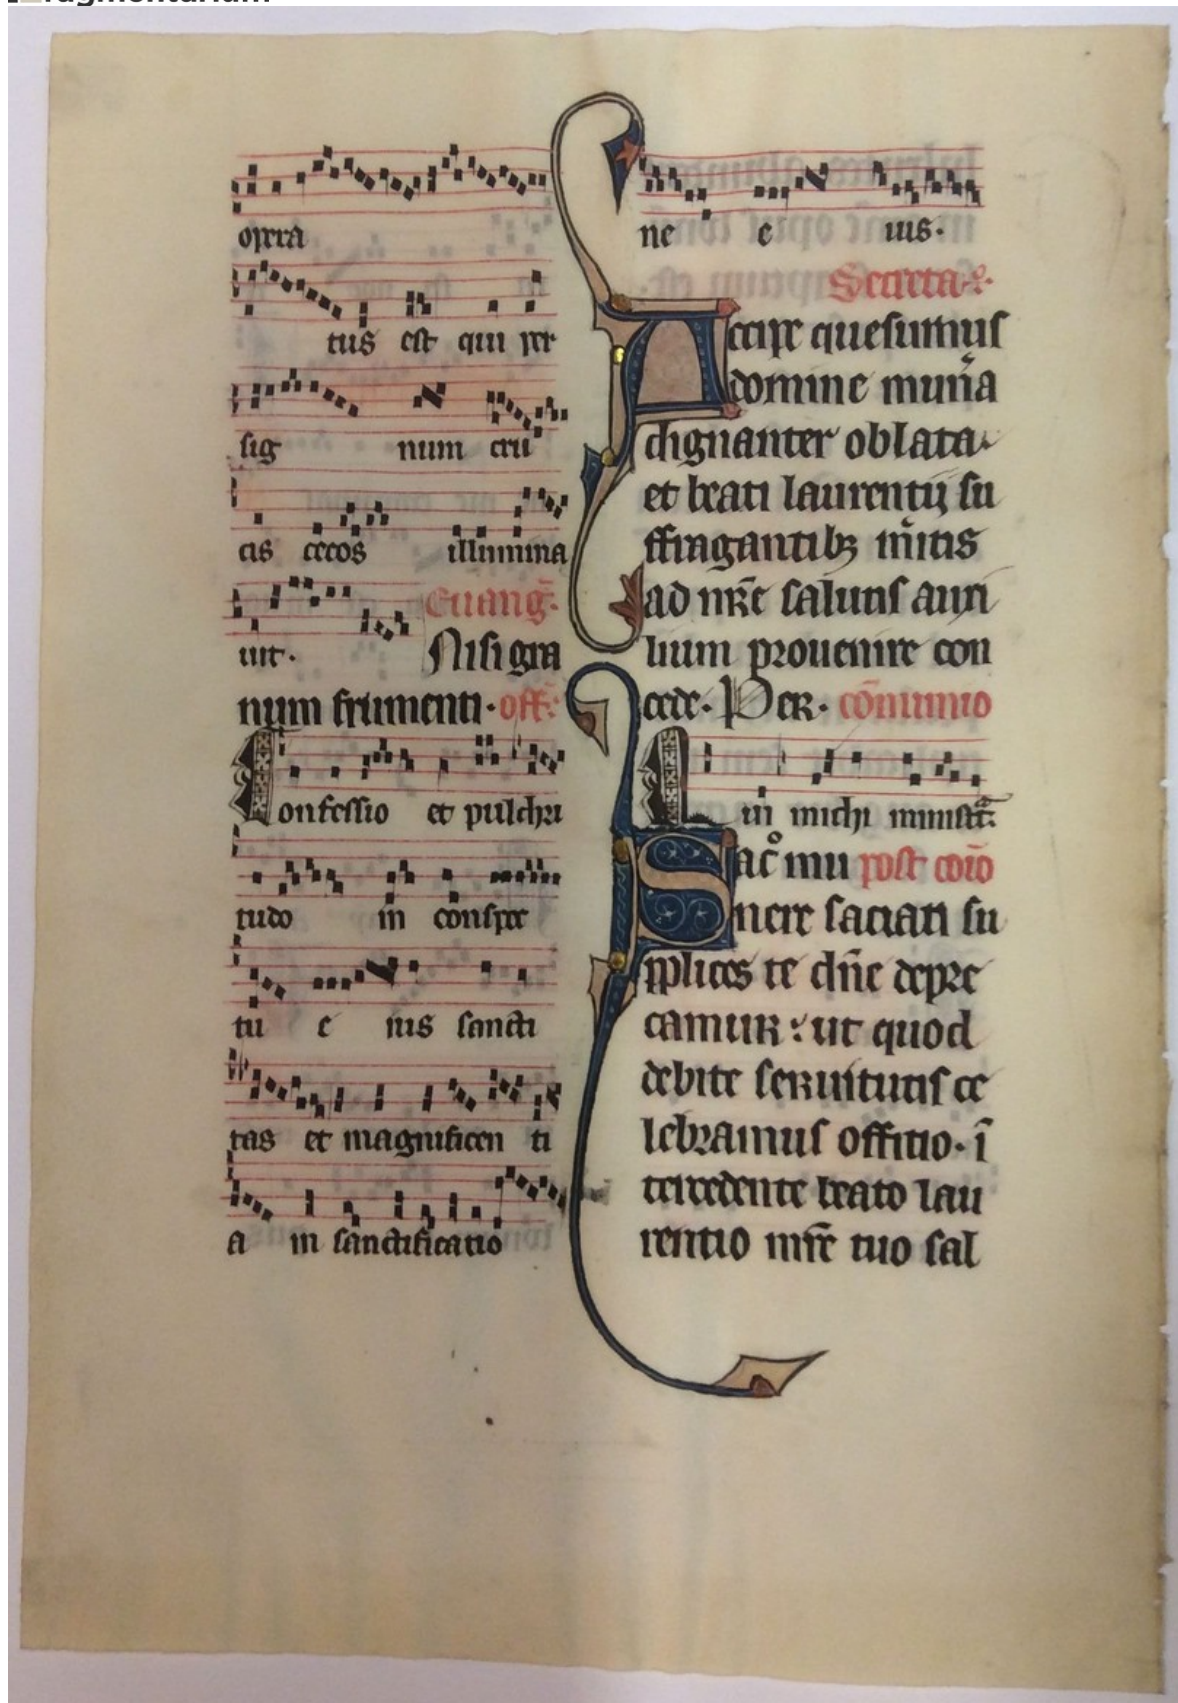 opera
tus est qui per
sig num cru
cis cecos illumina
uit.
Euang̅.
Nisi gra
num frumenti. off̅.
Confessio et pulchri
tudo in conspec
tu e ius sancti
tas et magnificen ti
a in sanctificatio
ne e ius.
Secreta.
Accipe quesumus
domine mun̅a
dignanter oblata.
et beati laurentij su
ffragantibꝫ m̅itis
ad nr̅e salutis auxi
lium prouenire con
cede. Per. co̅munio
Qui michi ministrͣ.
Sac̊ mu post co̅io̅
nere saciati su
pplices te dn̅e depre
camur : ut quod
debite seruitutis ce
lebramus offitio. i̅
tercedente beato lau
rentio mr̅e tuo sal